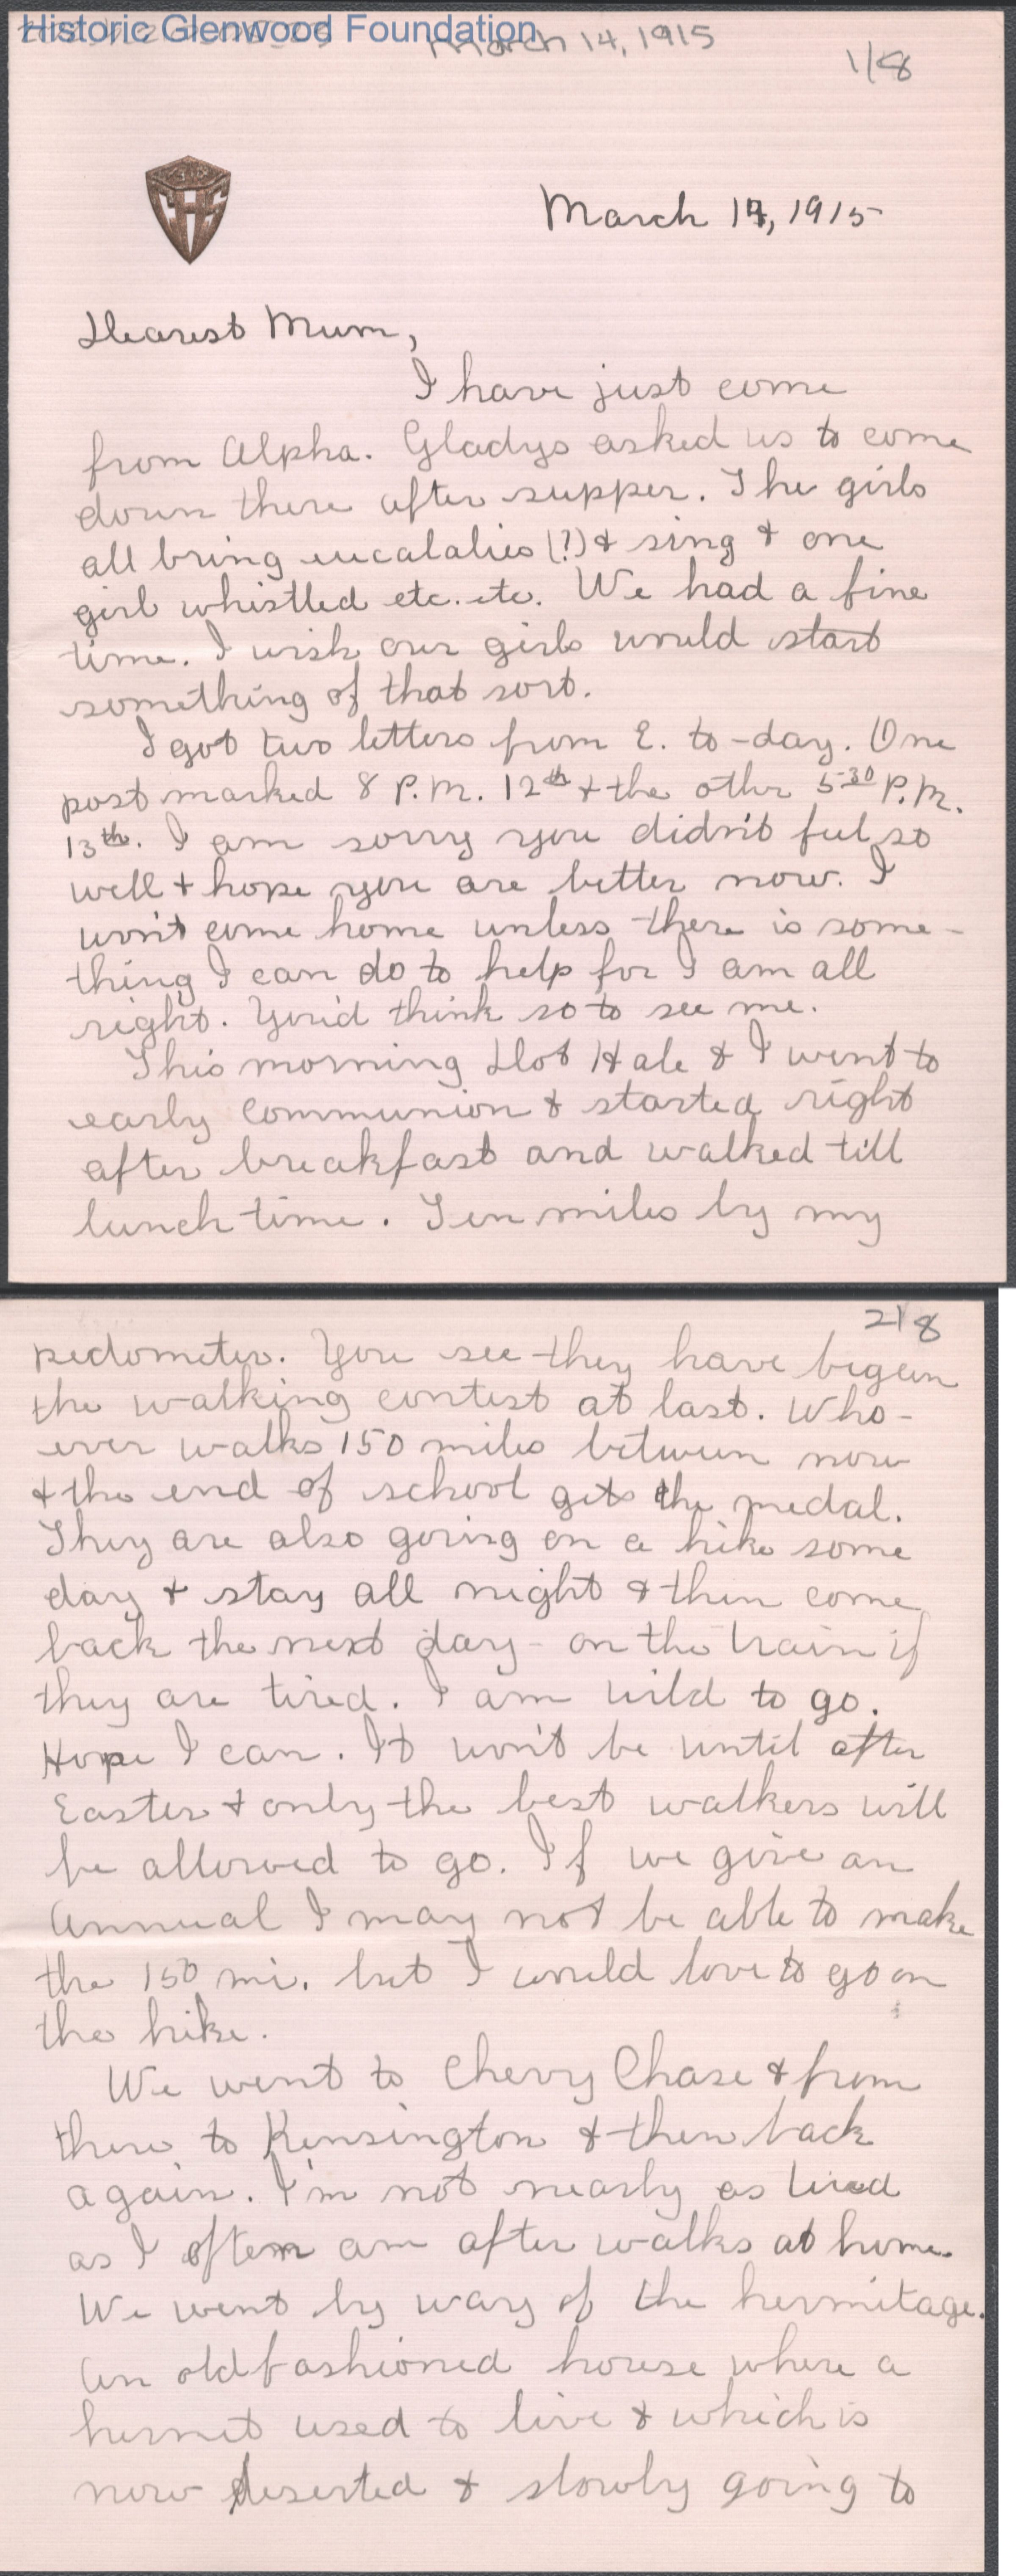 Historic Glenwood Foundation
March 14, 1915
1/8
March 14, 1915
Dearest Mum,
I have just come
from Alpha. Gladys asked us to come
down there after supper. The girls
all bring eucalalies (?) & sing & one
girl whistled etc. etc. We had a fine
time. I wish our girls would start
something of that sort.
I got two letters from E. to-day. One
post marked 8 P.M. 12th & the other 5 30 P.M.
13th. I am sorry you didn't feel so
well & hope you are better now. I
won't come home unless there is some-
thing I can do to help for I am all
right. You'd think so to see me.
This morning Dot Hale & I went to
early Communion & started right
after breakfast and walked till
lunch time. Ten miles by my
2/8
pedometer. You see they have begun
the walking contest at last. Who-
ever walks 150 miles between now
& the end of school gets the medal.
They are also going on a hike some
day & stay all night & then come
back the next day - on the train if
they are tired. I am wild to go.
Hope I can. It won't be until after
Easter & only the best walkers will
be allowed to go. If we give an
Annual I may not be able to make
the 150 mi. but I would love to go on
the hike.
We went to Chevy Chase & from
there to Kensington & then back
again. I'm not nearly as tired
as I often am after walks at home.
We went by way of the hermitage.
An old fashioned house where a
hermit used to live & which is
now deserted & slowly going to